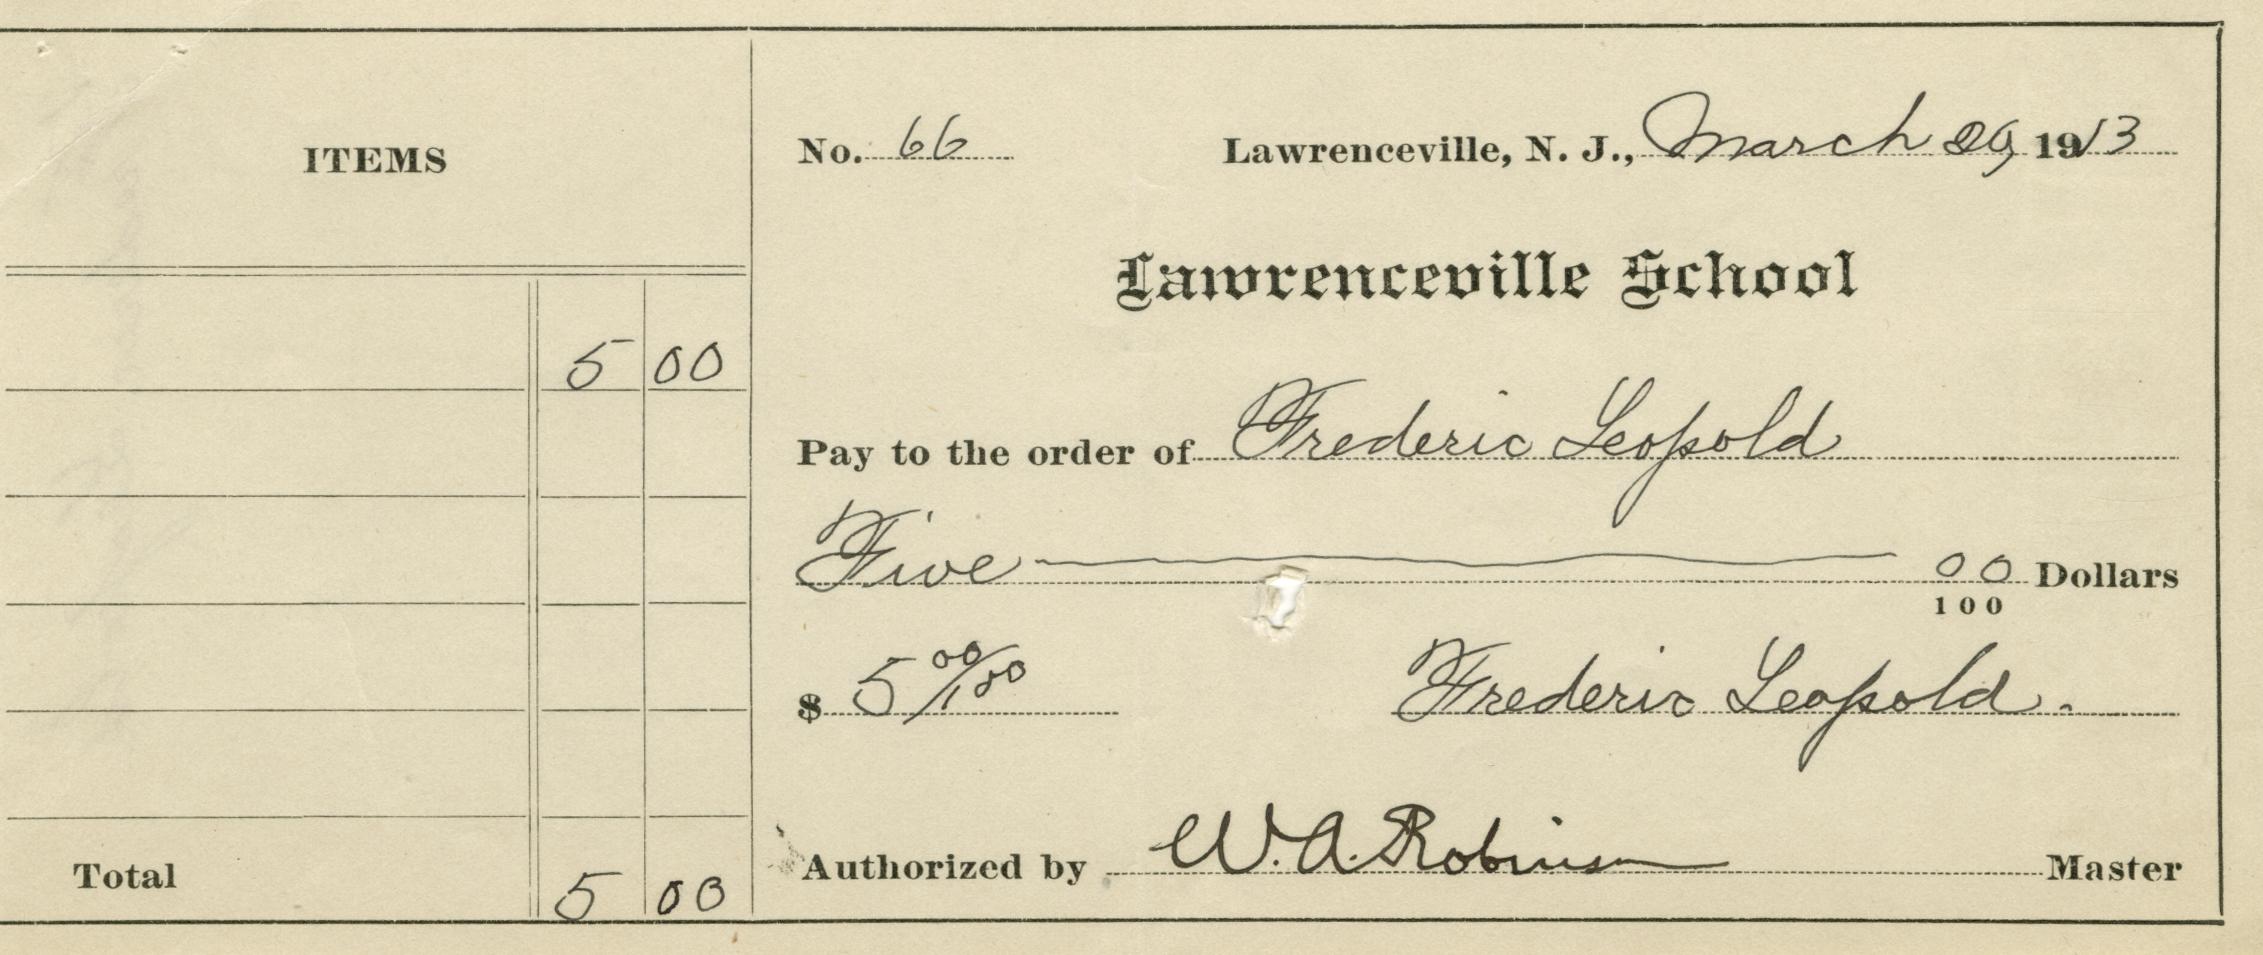 ITEMS
No. 66 Lawrenceville, N. J., March 20, 1913
Lawrenceville School
5 00
Pay to the order of Frederic Leopold
Five 00/100 Dollars
$ 5 00/100 Frederic Leopold.
Authorized by W. A. Robinson Master
Total 5 00